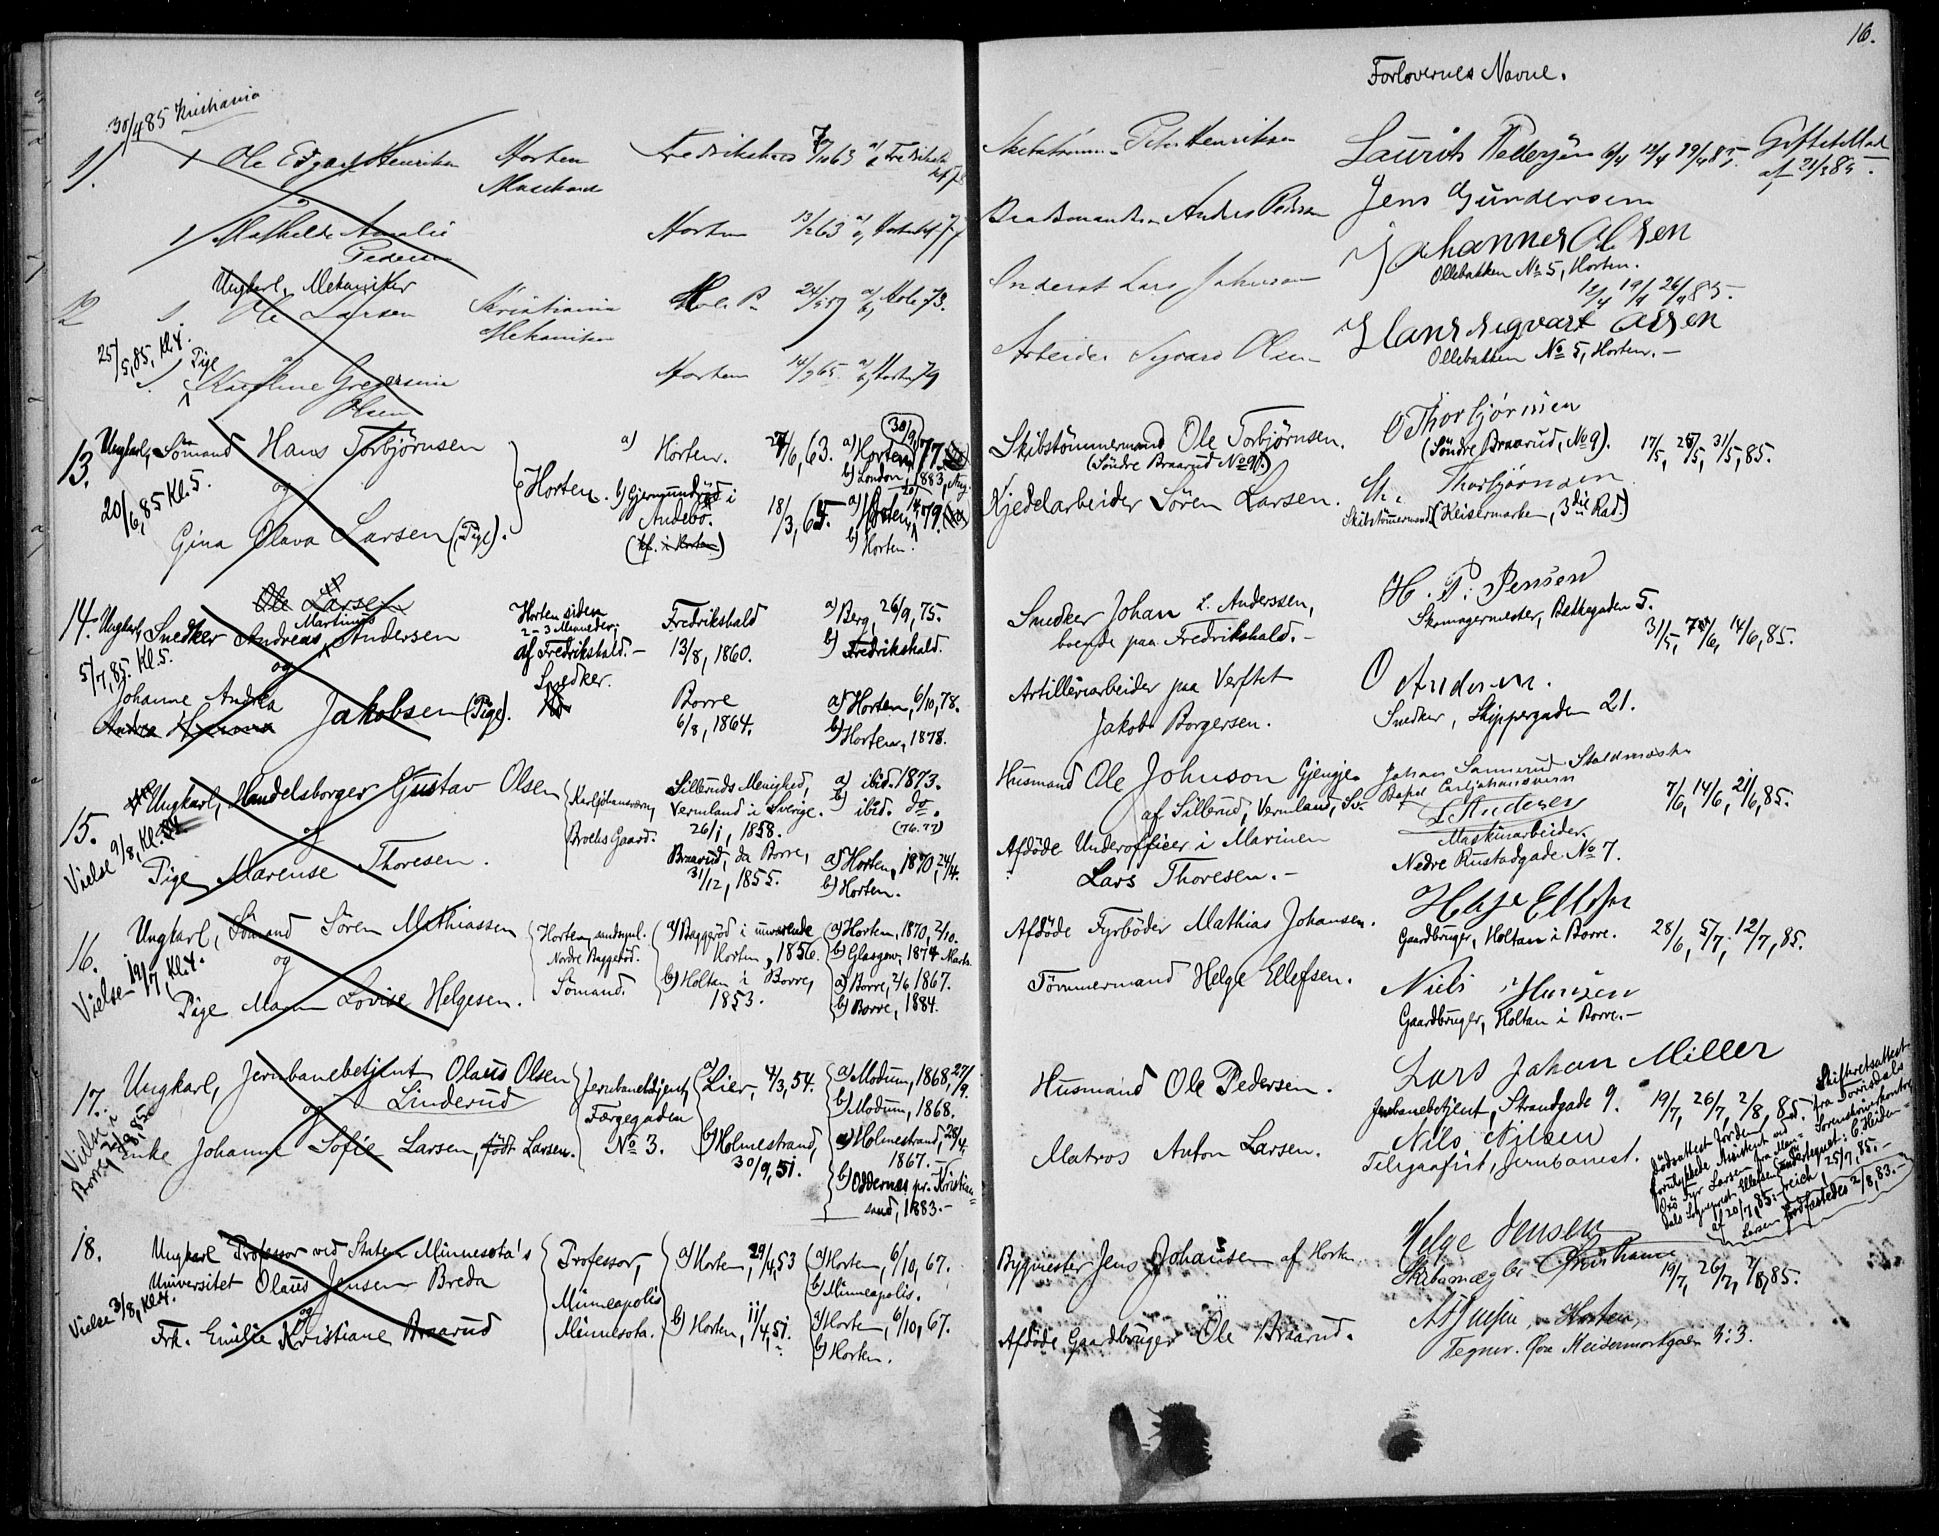 16.
Forlovernes Navne.
30/4 85 Kristiania
11. 1 Ole Edvart Henriksen Horten Fredrikshald 63
Peter Henriksen Laurits Pedersen 12/4 19/4 85. Giftetillad
af 21/3 85.
1 Mathilde Amalie Horten 13/2 63
Pedersen
Anders Pedersen Jens Gundersen
Ungkarl, Mekaniker
12 1 Ole Larsen Kristiania Hole P. 24/5 59 a/ Hole 73.
Mekaniker
Inderst Lars Johnsen Johannes Olsen
Ollebakken No 5, Horten.
12/4 19/4 26/4 85.
25/5, 85, Kl. 4.
Pige
1. Karoline Gregersine Horten 14/9 65 a/ Horten 79
Olsen
Arbeider Sigvard Olsen Hans Sigvart Olsen
Ollebakken No 5, Horten.
13. Ungkarl, Sömand Hans Torbjörnsen
og
20/6, 85 Kl. 5.
Gina Olava Larsen (Pige).
Horten.
a) Horten. 27/6, 63. a) Horten 30/9, 77.
b) London, 1883, Aug.
b) Gjermundröd i
Andebö. 18/3, 64. a) Horten, 79.
(kf. i Horten) b) Horten.
Skibstömmermand Ole Torbjörnsen. O Thorbjörnsen
(Söndre Braarud No 9). (Söndre Braarud, No 9). 17/5, 25/5, 31/5, 85.
Kjedelarbeider Sören Larsen. Th. Thorbjörnsen
Skibstömmermand (Keisermarken, 3die Rad.)
14. Ole Larsen
Ungkarl, Snedker Andreas Martinus Andersen
5/7, 85. Kl. 5. og
Johanne Andrea
Jakobsen (Pige).
Horten siden
2-3 Maaneder;
af Fredrikshald. -
Snedker.
Fredrikshald
13/8, 1860.
Borre
6/8, 1864.
a) Berg, 26/9, 75.
b) Fredrikshald.
a) Horten, 6/10, 78.
b) Horten, 1878.
Snedker Johan L. Anderssen,
boende paa Fredrikshald. -
Artilleriarbeider paa Verftet
Jakob Borgersen.
H. P. Jensen
Skomagermester, Bethegaden 5.
31/5, 7/6, 14/6, 85.
O Andersen.
Snedker, Skippergaden 21.
15. Ungkarl, Handelsborger Gustav Olsen
og
Vielse 9/8, Kl.
Pige Marense Thoresen.
Karljohansværn,
Brochs Gaard.
Silleruds Menighed,
Vermland i Sverige.
26/1, 1858.
Braarud, da Borre,
31/12, 1855.
a) ibid. 1873.
b) ibid. do.
(76. 77)
a) Horten, 1870, 24/4.
b) Horten.
Husmand Ole Johnson Gjengje
af Sillerud, Vermland, Sv.
Afdöde Underofficer i Marinen
Lars Thoresen. -
Johan Sannerud Staldmester
Carljohansværn
L Andersen
Maskinarbeider.
Nedre Rustadgade No 7.
7/6, 14/6, 21/6, 85.
16. Ungkarl, Sömand Sören Mathiassen
og
Vielse 19/7, Kl. 4.
Pige Maren Lovise Helgesen.
Horten,
Nordre Baggeröd.
Sömand.
a) Baggeröd i nuværende
Horten, 1856.
b) Holtan i Borre,
1853.
a) Horten, 1870, 2/10.
b) Glasgow, 1874 Marts.
a) Borre, 2/6 1867.
b) Borre, 1884.
Afdöde Fyrböder Mathias Johansen.
Tömmermand Helge Ellefsen.
Helge Ellefsen
Gaardbruger, Holtan i Borre. 28/6, 5/7, 12/7, 85.
Niels Hansen
Gaardbruger, Holtan i Borre. -
17. Ungkarl, Jernbanebetjent Olaus Olsen
og Linderud
Vielse i
Borre 23/8, 85.
Enke Johanne Sofie Larsen, född Larsen.
Jernbanebetjent,
Færgegaden
No 3.
a) Lier, 4/3, 54.
b) Holmestrand,
30/9, 51.
a) Modum, 1868, 27/9.
b) Modum, 1868.
a) Holmestrand, 28/4,
1867. -
b) Oddernes pr. Kristian-
sand, 1883. -
Husmand Ole Pedersen.
Matros Anton Larsen.
Lars Johan Miller
Jernbanebetjent, Strandgade 9. 19/7, 26/7, 2/8, 85.
Nils Nilsen
Telegrafist, Jernbanest.
Skifteretsattest
fra Torrisdals
Sorenskriverkontor
Dödsattest for den
forulykkede Assistent ved
Oxö Fyr Larsen fra Man-
dals Sogneprest Ellefsen
af 20/7, 85.
undertegnet: C. Heiden-
reich, 25/7, 85. -
Larsen jordfæstedes 2/8, 83. -
18. Ungkarl Professor ved Staten Minnesota's
Universitet Olaus Jensen Breda
og
Vielse 3/8, Kl. 4.
Frk. Emilie Kristiane Braarud
Professor,
Minneapolis
Minnesota.
a) Horten, 29/4, 53
b) Horten, 11/4, 51.
a) Horten, 6/10, 67.
b) Minneapolis.
a) Horten, 6/10, 67.
b) Horten.
Bygmester Jens Johansen af Horten
Afdöde Gaardbruger Ole Braarud.
Helge Jensen
Skibsmægler
19/7, 26/7, 2/8, 85.
Horten
Tegner.